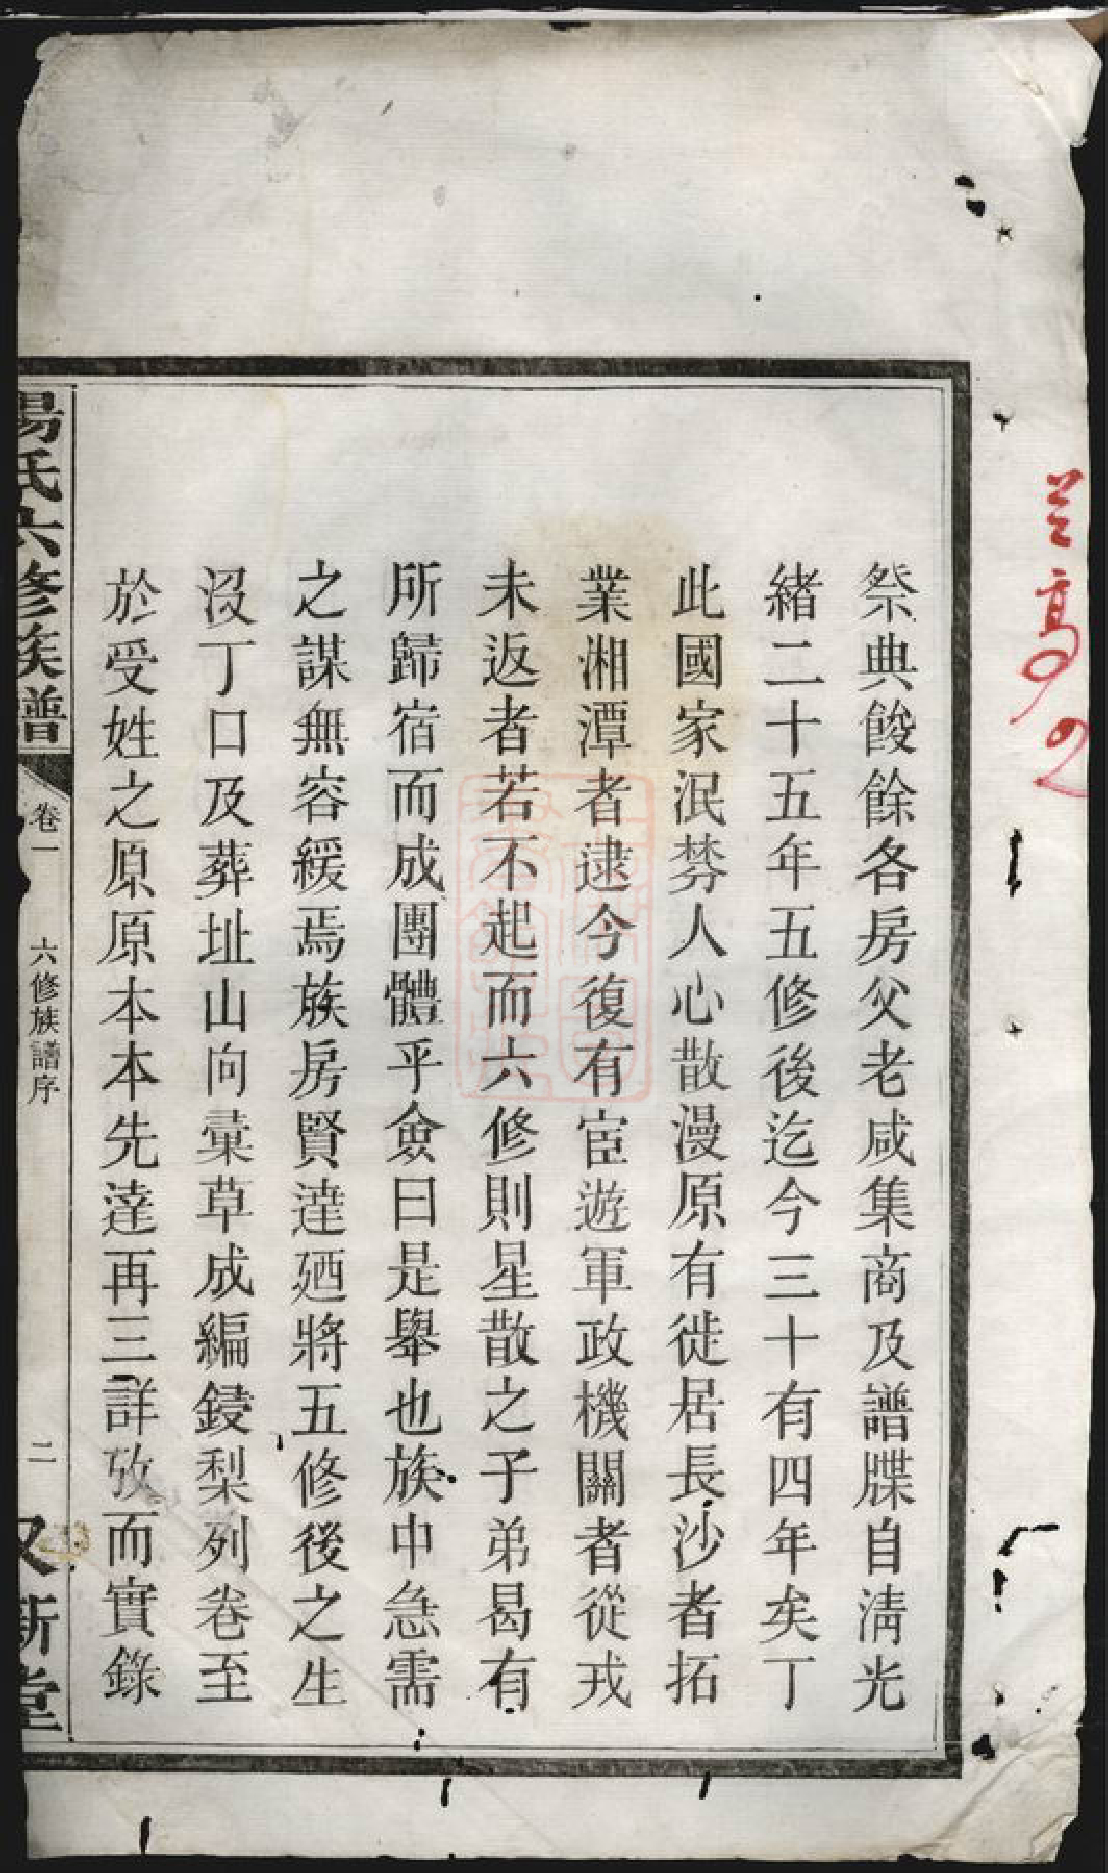 祭典餕餘各房父老咸集商及譜牒自淸光
緒二十五年五修後迄今三十有四年矣丁
此國家泯棼人心散漫原有徙居長沙者拓
業湘潭者逮今復有宦遊軍政機關者從戎
未返者若不起而六修則星散之子弟曷有
所歸宿而成團體乎僉曰是舉也族中急需
之謀無容緩焉族房賢達廼將五修後之生
沒丁口及葬址山向彙草成編鋟梨列卷至
於受姓之原原本本先達再三詳攷而實錄
氏六修族譜
卷一
六修族譜序
二
又新堂